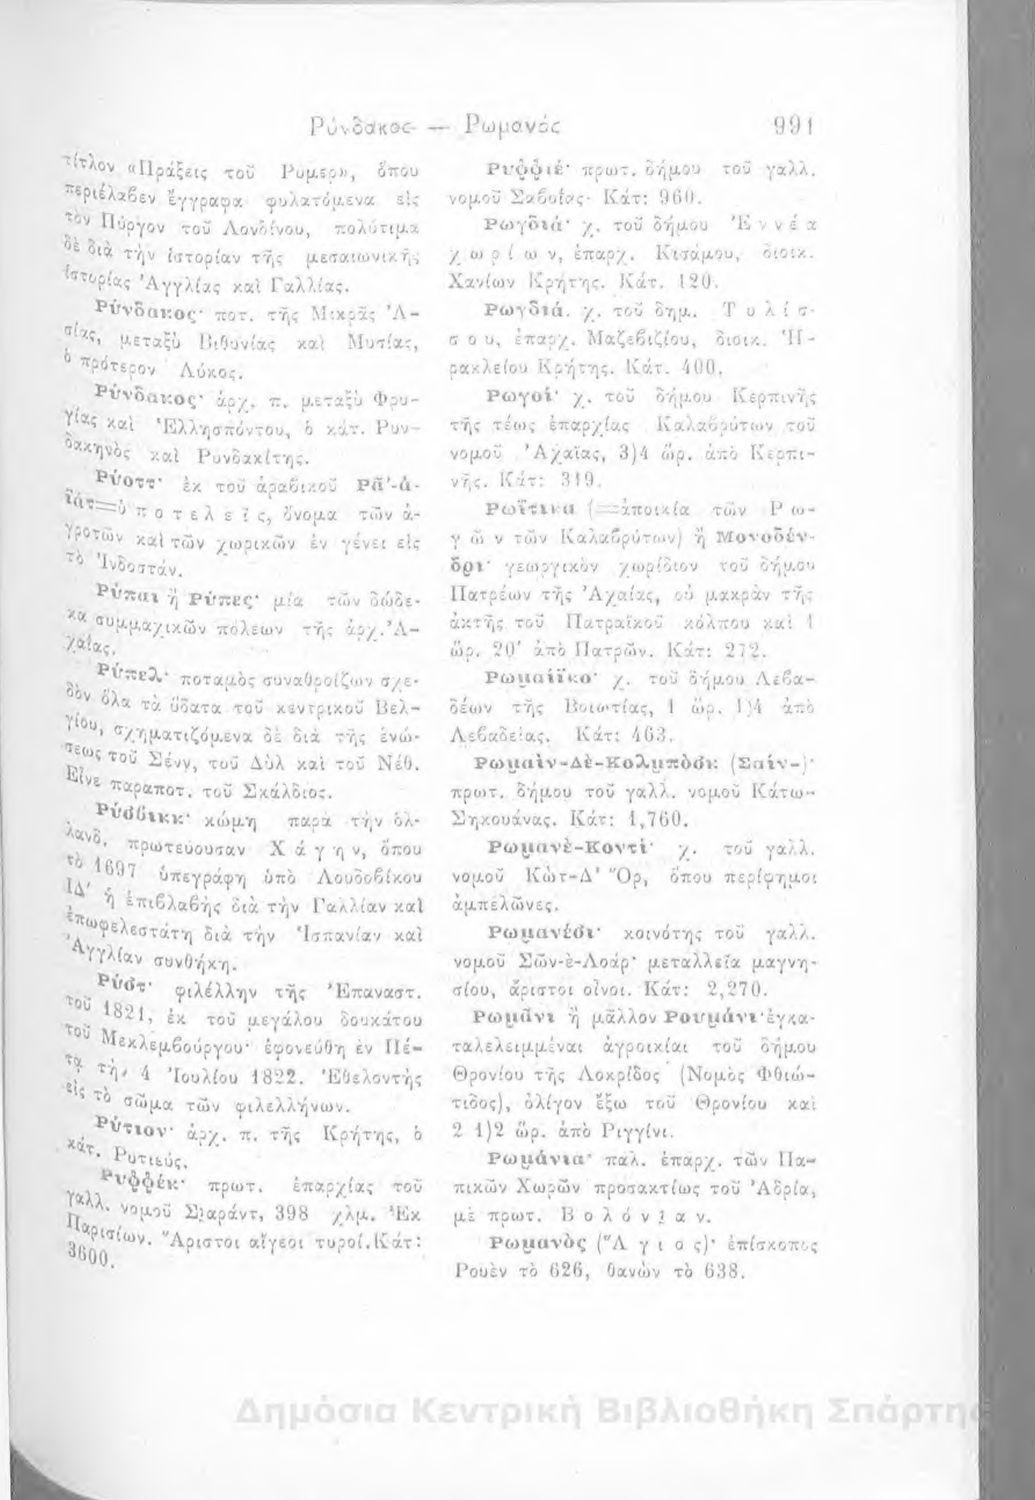 Ρύνδακος — Ρωμανός 991
τίτλον «Πράξεις τοῦ Ρύμερ», ὅπου
περιέλαβεν ἔγγραφα φυλατόμενα εἰς
τὸν Πύργον τοῦ Λονδίνου, πολύτιμα
δὲ διὰ τὴν ἱστορίαν τῆς μεσαιωνικῆς
ἱστορίας Ἀγγλίας καὶ Γαλλίας.
Ρύνδακος· ποτ. τῆς Μικρᾶς Ἀ-
σίας, μεταξὺ Βιθυνίας καὶ Μυσίας,
ὁ πρότερον Λύκος.
Ρύνδακος· ἀρχ. π. μεταξὺ Φρυ-
γίας καὶ Ἑλλησπόντου, ὁ κάτ. Ρυν-
δακηνὸς καὶ Ρυνδακίτης.
Ρύοττ· ἐκ τοῦ ἀραβικοῦ Ρᾶ'-ά-
ϊάτ=ὑποτελεῖς, ὄνομα τῶν ἀ-
γροτῶν καὶ τῶν χωρικῶν ἐν γένει εἰς
τὸ Ἰνδοστάν.
Ρύπαι ἢ Ρύπες· μία τῶν δώδε-
κα συμμαχικῶν πόλεων τῆς ἀρχ. Ἀ-
χαΐας.
Ρύπελ· ποταμὸς συναθροίζων σχε-
δὸν ὅλα τὰ ὕδατα τοῦ κεντρικοῦ Βελ-
γίου, σχηματιζόμενα δὲ διὰ τῆς ἑνώ-
σεως τοῦ Σένν, τοῦ Δὺλ καὶ τοῦ Νέθ.
Εἶνε παραποτ. τοῦ Σκάλδιος.
Ρύσβικκ· κώμη παρὰ τὴν ὁλ-
λανδ. πρωτεύουσαν Χάγην, ὅπου
τὸ 1697 ὑπεγράφη ὑπὸ Λουδοβίκου
ΙΔ' ἡ ἐπιβλαβὴς διὰ τὴν Γαλλίαν καὶ
ἐπωφελεστάτη διὰ τὴν Ἱσπανίαν καὶ
Ἀγγλίαν συνθήκη.
Ρύστ· φιλέλλην τῆς Ἐπαναστ.
τοῦ 1821, ἐκ τοῦ μεγάλου δουκάτου
τοῦ Μεκλεμβούργου· ἐφονεύθη ἐν Πέ-
τᾳ τῇ 4 Ἰουλίου 1822. Ἐθελοντὴς
εἰς τὸ σῶμα τῶν φιλελλήνων.
Ρύτιον· ἀρχ. π. τῆς Κρήτης, ὁ
κάτ. Ρυτιεύς.
Ρυφφέκ· πρωτ. ἐπαρχίας τοῦ
γαλλ. νομοῦ Σιαράντ, 398 χλμ. Ἐκ
Παρισίων. Ἄριστοι αἴγεοι τυροί. Κάτ:
3600.
Ρυφφιέ· πρωτ. δήμου τοῦ γαλλ.
νομοῦ Σαβοΐας· Κάτ: 960.
Ρωγδιά· χ. τοῦ δήμου Ἐννέα
χωρίων, ἐπαρχ. Κισάμου, διοικ.
Χανίων Κρήτης. Κάτ. 120.
Ρωγδιά. χ. τοῦ δημ. Τυλίσ-
σου, ἐπαρχ. Μαζεβιζίου, διοικ. Ἡ-
ρακλείου Κρήτης. Κάτ. 400.
Ρωγοί· χ. τοῦ δήμου Κερπινῆς
τῆς τέως ἐπαρχίας Καλαβρύτων τοῦ
νομοῦ Ἀχαΐας, 3)4 ὥρ. ἀπὸ Κερπι-
νῆς. Κάτ: 319.
Ρωΐτικα (=ἀποικία τῶν Ρω-
γῶν τῶν Καλαβρύτων) ἢ Μονοδέν-
δρι· γεωργικὸν χωρίδιον τοῦ δήμου
Πατρέων τῆς Ἀχαΐας, οὐ μακρὰν τῆς
ἀκτῆς τοῦ Πατραϊκοῦ κόλπου καὶ 1
ὥρ. 20' ἀπὸ Πατρῶν. Κάτ: 272.
Ρωμαίϊκο· χ. τοῦ δήμου Λεβα-
δέων τῆς Βοιωτίας, 1 ὥρ. 1)4 ἀπὸ
Λεβαδείας. Κάτ: 463.
Ρωμαὶν-Δὲ-Κολμπόσκ (Σαίν-)·
πρωτ. δήμου τοῦ γαλλ. νομοῦ Κάτω-
Σηκουάνας. Κάτ: 1,760.
Ρωμανὲ-Κοντί· χ. τοῦ γαλλ.
νομοῦ Κὼτ-Δ' Ὄρ, ὅπου περίφημοι
ἀμπελῶνες.
Ρωμανέσι· κοινότης τοῦ γαλλ.
νομοῦ Σῶν-ὲ-Λοάρ· μεταλλεῖα μαγνη-
σίου, ἄριστοι οἶνοι. Κάτ: 2,270.
Ρωμᾶνι ἢ μᾶλλον Ρουμάνι· ἐγκα-
ταλελειμμέναι ἀγροικίαι τοῦ δήμου
Θρονίου τῆς Λοκρίδος (Νομὸς Φθιώ-
τιδος), ὀλίγον ἔξω τοῦ Θρονίου καὶ
2 1)2 ὥρ. ἀπὸ Ριγγίνι.
Ρωμάνια· παλ. ἐπαρχ. τῶν Πα-
πικῶν Χωρῶν προσακτίως τοῦ Ἀδρία,
μὲ πρωτ. Βολόνιαν.
Ρωμανὸς (Ἅγιος)· ἐπίσκοπος
Ρουὲν τὸ 626, θανὼν τὸ 638.
Δημόσια Κεντρική Βιβλιοθήκη Σπάρτης